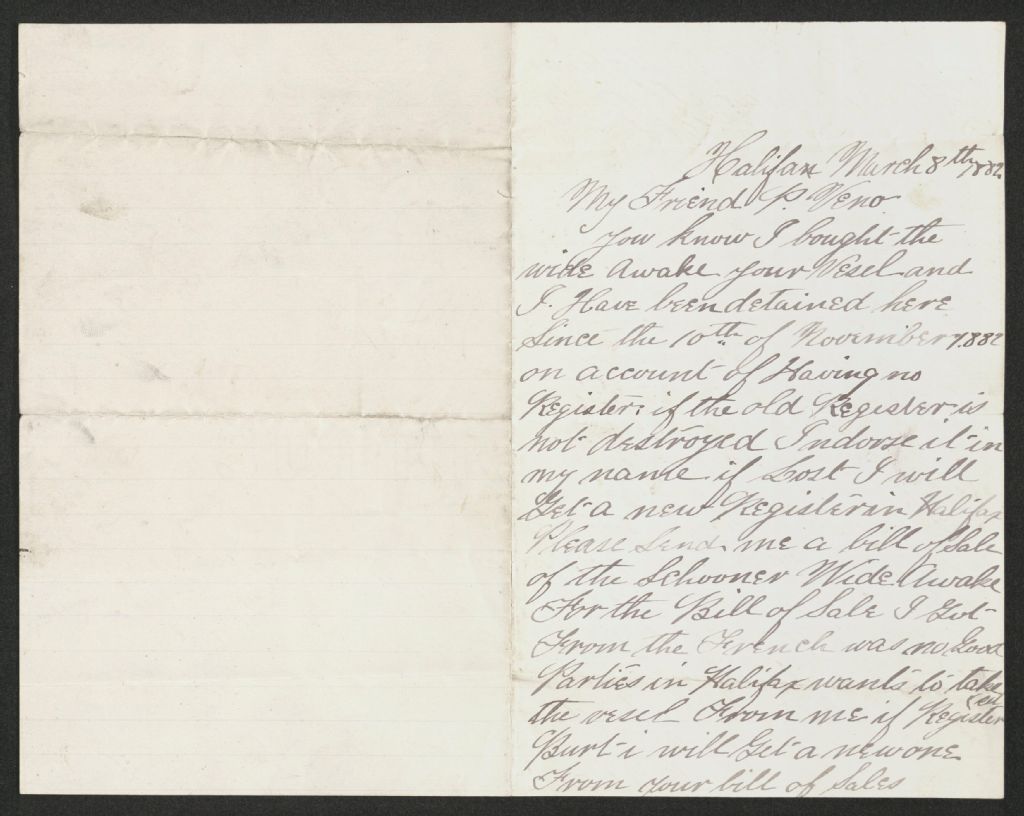 Halifax March 8th 1882
My Friend P Veno
you know I bought the
wide Awake your Vesel and
I. Have been detained here
Since the 10th of November 1.882
on account of Having no
Register: if the old Regester is
not destroyed Indorse it in
my name if Lost I will
Get a new Register in Halifax
Please Send me a bill of Sale
of the Schooner Wide Awake
For the Bill of Sale I Got
From the French was no Good
Parties in Halifax wants to take
the vesel From me if Register
Burt i will Get a new one
From your bill of Sales